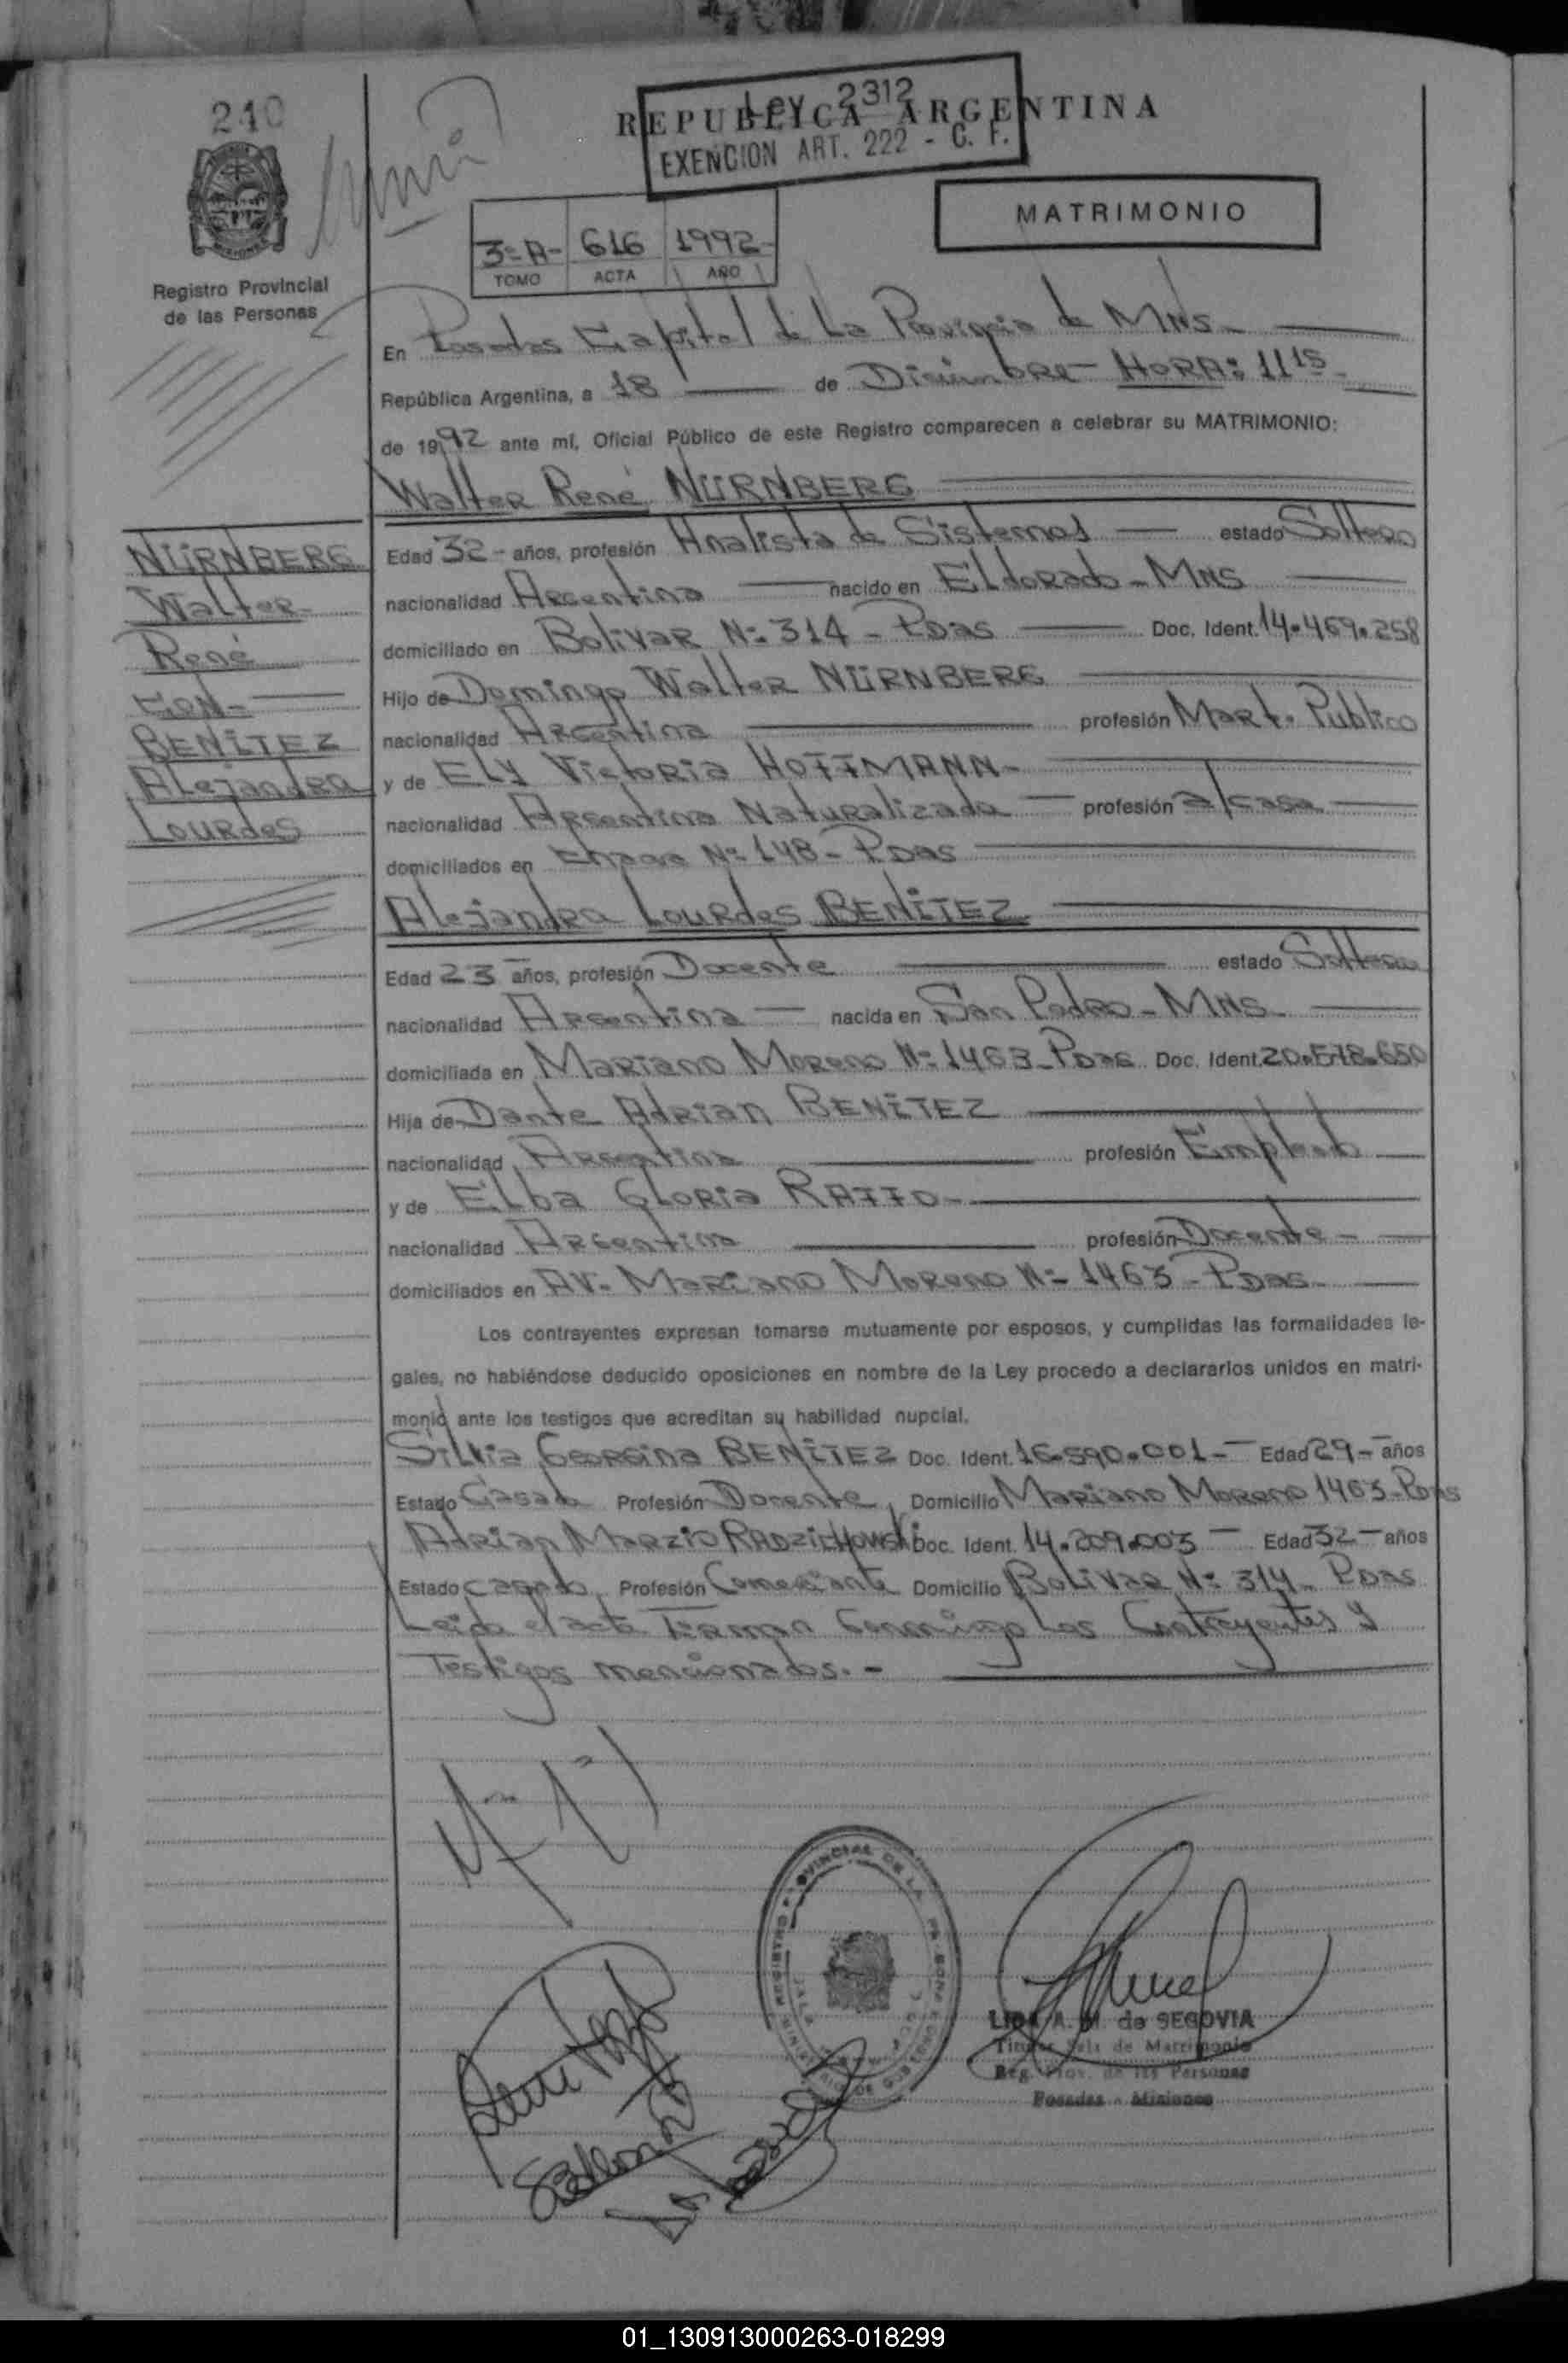 240
REPUBLICA ARGENTINA
Ley 2312
EXENCION ART. 222 - C. F.
MATRIMONIO
3º A- 616 1992-
TOMO ACTA AÑO
Registro Provincial
de las Personas
En Posadas Capital de La Provincia de Mns-
República Argentina, a 18 de Diciembre - HORA: 11 15-
de 1992 ante mí, Oficial Público de este Registro comparecen a celebrar su MATRIMONIO:
Walter René NÜRNBERG
NÜRNBERG
Walter-
René
CON-
BENÍTEZ
Alejandra
Lourdes
Edad 32- años, profesión Analista de Sistemas estado Soltero
nacionalidad Argentina nacido en Eldorado - Mns
domiciliado en Bolivar Nº 314 - Pdas Doc. Ident. 14.469.258
Hijo de Domingo Walter NÜRNBERG
nacionalidad Argentina profesión Mart. Publico
y de Ely Victoria HOFFMANN-
nacionalidad Argentina Naturalizada profesión a/casa
domiciliados en Nº 148 - Pdas
Alejandra Lourdes BENÍTEZ
Edad 23 años, profesión Docente estado Soltera
nacionalidad Argentina nacida en San Pedro - Mns
domiciliada en Mariano Moreno Nº 1463 - Pdas Doc. Ident. 20.578.650
Hija de Dante Adrian BENÍTEZ
nacionalidad Argentina profesión Empleado
y de Elba Gloria RATTO-
nacionalidad Argentina profesión Docente -
domiciliados en AV. Mariano Moreno Nº 1463 - Pdas-
Los contrayentes expresan tomarse mutuamente por esposos, y cumplidas las formalidades le-
gales, no habiéndose deducido oposiciones en nombre de la Ley procedo a declararlos unidos en matri-
monio ante los testigos que acreditan su habilidad nupcial.
Silvia Georgina BENÍTEZ Doc. Ident. 16.590.001- Edad 29- años
Estado Casada Profesión Docente Domicilio Mariano Moreno 1463-Pdas
Adrian Marzio Doc. Ident. 14.209.003 - Edad 32- años
Estado casado Profesión Comerciante Domicilio Bolivar Nº 314- Pdas
Leida el acta Firman Conmigo Los Contrayentes y
Testigos mencionados.-
LIDA A. M. de SEGOVIA
Titular Sala de Matrimonio
Reg. Prov. de las Personas
Posadas - Misiones
01_130913000263-018299